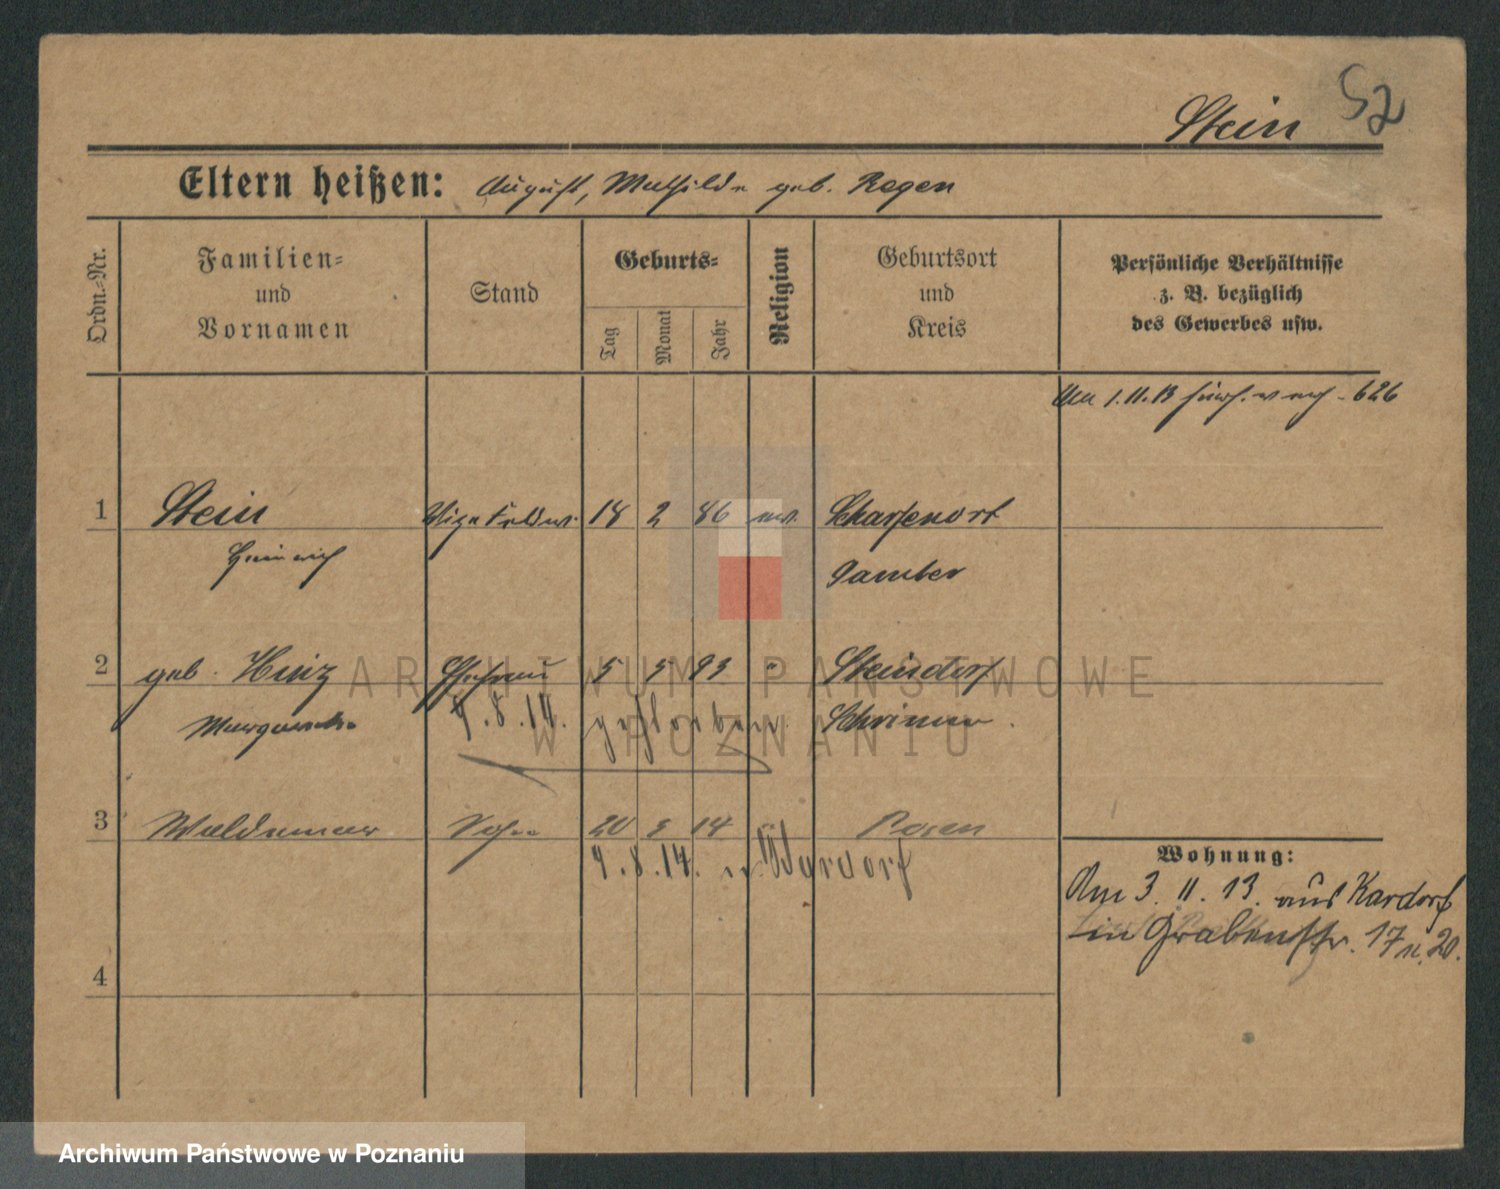 Stein 52
Eltern heißen: August, Mathilde geb. Regen
Ordn.-Nr.
Familien-
und
Vornamen
Stand
Geburts-
Tag
Monat
Jahr
Religion
Geburtsort
und
Kreis
Persönliche Verhältnisse
z. B. bezüglich
des Gewerbes usw.
1.11.13 - 626
1 Stein Vizefeldw. 18 2 86 ev. Scharfenort
Heinrich Samter
2 geb. Hinz Ehefrau 5 5 93 " Steindorf
Margarethe 9.8.14. gestorben Schrimm.
3 Waldemar Sohn 20 5 14 " Posen
9.8.14. n.
Wohnung:
Am 3. 11. 13. aus Kardorf
in Grabenstr. 17 n. 20.
4
ARCHIWUM PAŃSTWOWE
W POZNANIU
Archiwum Państwowe w Poznaniu